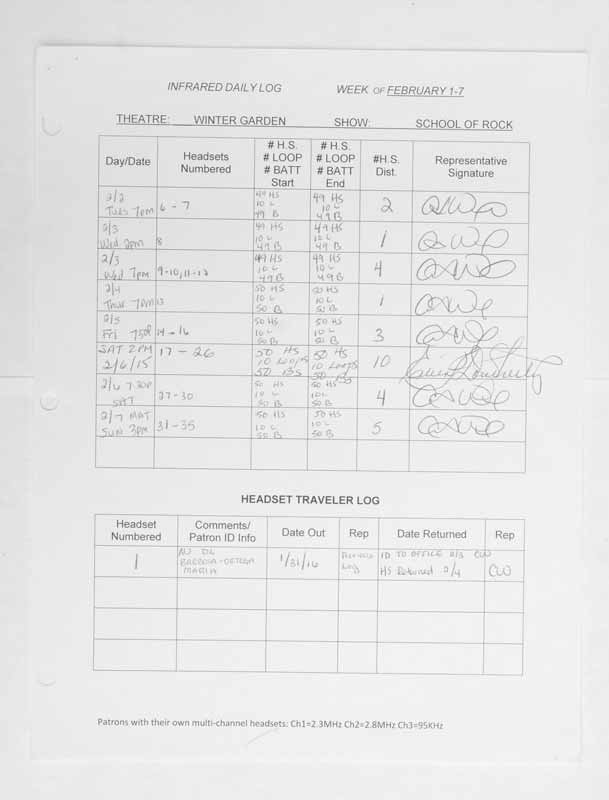 INFRARED DAILY LOG WEEK OF FEBRUARY 1-7
THEATRE: WINTER GARDEN SHOW: SCHOOL OF ROCK
Day/Date Headsets Numbered # H.S. # LOOP # BATT Start # H.S. # LOOP # BATT End #H.S. Dist. Representative Signature
2/2 Tues 7pm 6 - 7 49 HS 10 L 49 B 49 HS 10 L 49 B 2
2/3 Wed 2pm 8 49 HS 10 L 49 B 49 HS 10 L 49 B 1
2/3 Wed 7pm 9-10, 11-12 49 HS 10 L 49 B 49 HS 10 L 49 B 4
2/4 Thur 7pm 13 50 HS 10 L 50 B 50 HS 10 L 50 B 1
2/5 Fri 730 14-16 50 HS 10 L 50 B 50 HS 10 L 50 B 3
SAT 2PM 2/6/15 17 - 26 50 HS 10 LOOPS 50 BS 50 HS 10 LOOPS 50 BS 10
2/6 730P SAT 27-30 50 HS 10 L 50 B 50 HS 10 L 50 B 4
2/7 MAT SUN 3PM 31-35 50 HS 10 L 50 B 50 HS 10 L 50 B 5
HEADSET TRAVELER LOG
Headset Numbered Comments/ Patron ID Info Date Out Rep Date Returned Rep
1 NJ DL BARBOSA-ORTEGA MARIA 1/31/16 Previous Log ID TO OFFICE 2/3 CW
HS Returned 2/4 CW
Patrons with their own multi-channel headsets: Ch1=2.3MHz Ch2=2.8MHz Ch3=95KHz